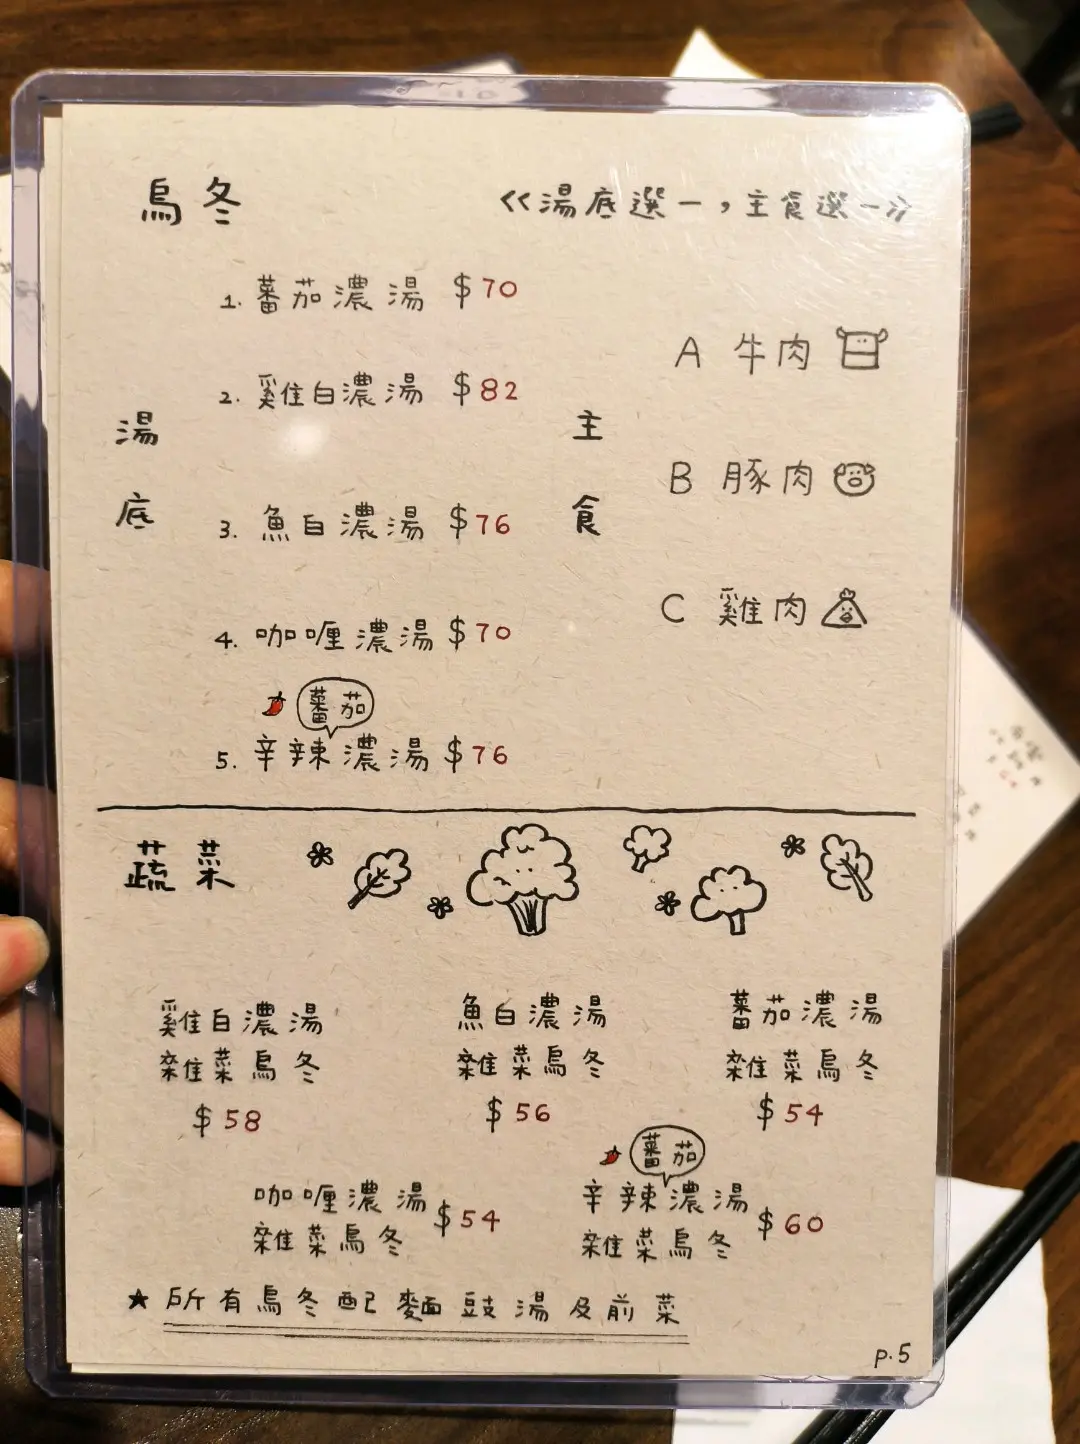 烏冬
<<湯底選一，主食選一>>
湯底
1. 蕃茄濃湯 $70
2. 雞白濃湯 $82
3. 魚白濃湯 $76
4. 咖喱濃湯 $70
蕃茄
5. 辛辣濃湯 $76
主食
A 牛肉
B 豚肉
C 雞肉
蔬菜
雞白濃湯
雜菜烏冬
$58
魚白濃湯
雜菜烏冬
$56
蕃茄濃湯
雜菜烏冬
$54
咖喱濃湯
雜菜烏冬
$54
蕃茄
辛辣濃湯
雜菜烏冬
$60
★所有烏冬配麵豉湯及前菜
P.5